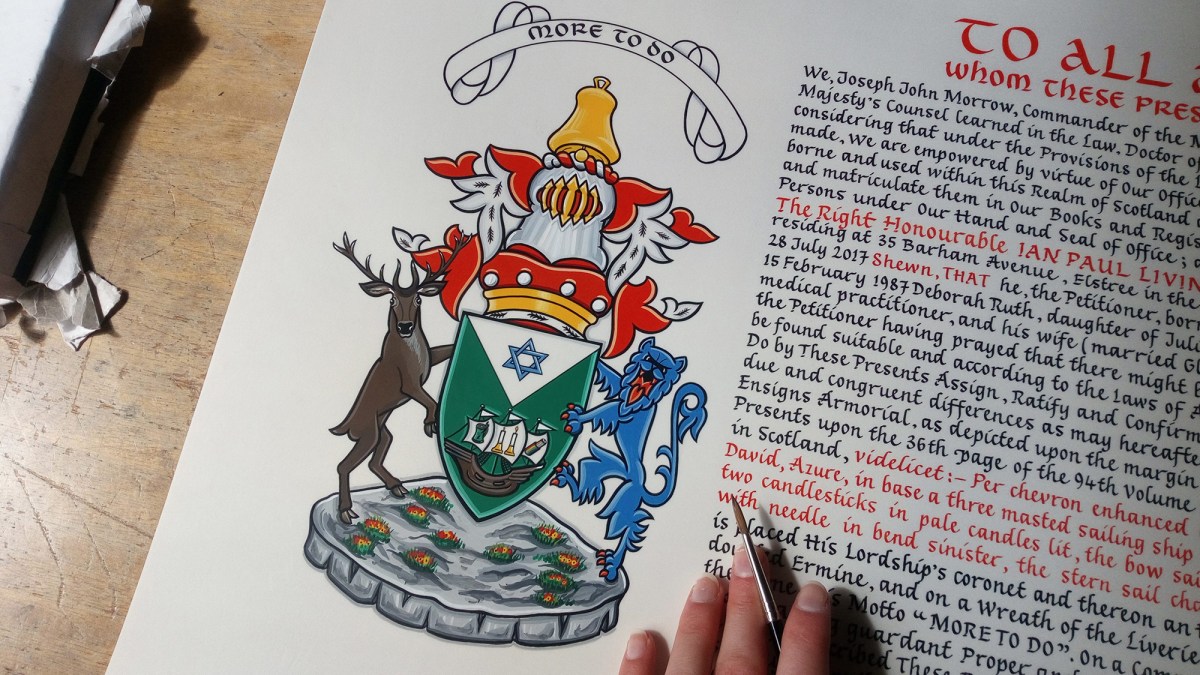 MORE TO DO
TO ALL
WHOM THESE PRES
We, Joseph John Morrow, Commander of the
Majesty's Counsel learned in the Law, Doctor of
considering that under the Provisions of the
made, We are empowered by virtue of Our Offic
borne and used within this Realm of Scotland
and matriculate them in Our Books and Regis
Persons under Our Hand and Seal of Office; a
The Right Honourable IAN PAUL LIVIN
residing at 35 Barham Avenue, Elstree in the
28 July 2017 Shewn, THAT he, the Petitioner, bor
15 February 1987 Deborah Ruth, daughter of Juli
medical practitioner, and his wife (married Gl
the Petitioner having prayed that there might
be found suitable and according to the Laws of A
Do by These Presents Assign, Ratify and Confirm
due and congruent differences as may hereafte
Ensigns Armorial, as depicted upon the margin
Presents upon the 36th page of the 94th Volume
in Scotland, videlicet:– Per chevron enhanced
David, Azure, in base a three masted sailing ship
two candlesticks in pale candles lit, the bow sai
with needle in bend sinister, the stern sail cha
is placed His Lordship's coronet and thereon an
Ermine, and on a Wreath of the Liverie
Motto "MORE TO DO". On a Com
guardant Proper an
These